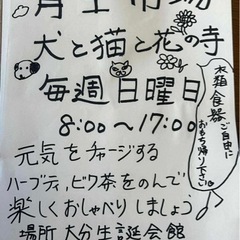 犬と猫と花の寺
毎週日曜日
8:00〜17:00
木箱食器ご自由に
おもち帰り下さい
元気をチャージする
ハーブティ,ビワ茶をのんで
楽しくおしゃべりしましょう
場所 大分生誕会館